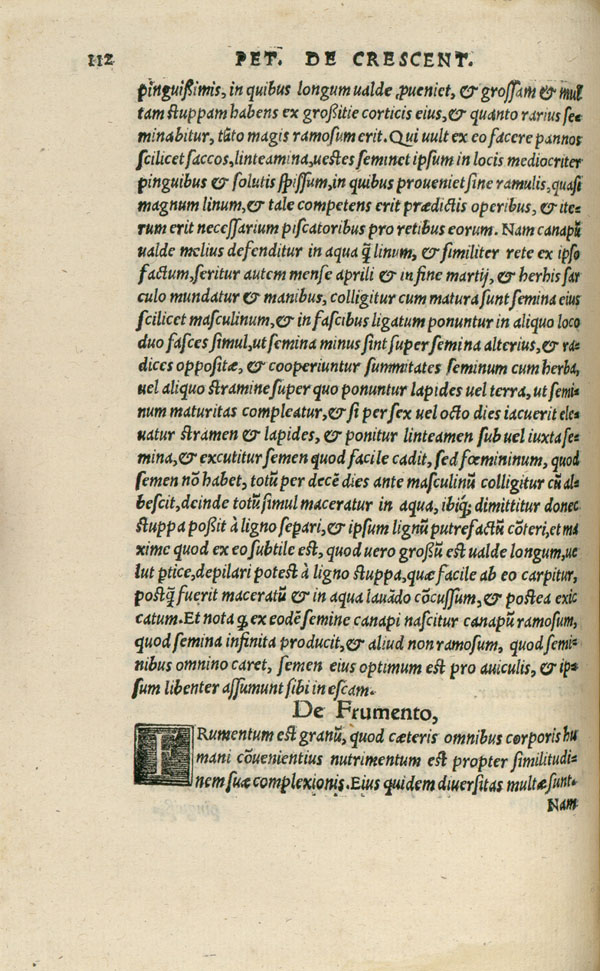 112 PET. DE CRESCENT.
pinguißimis, in quibus longum ualde ꝓueniet, & grossam & mul
tam stuppam habens ex großitie corticis eius, & quanto rarius se=
minabitur, tãto magis ramosum erit. Qui uult ex eo facere pannos
scilicet saccos, linteamina, uestes seminet ipsum in locis mediocriter
pinguibus & solutis spissum, in quibus proueniet sine ramulis, quasi
magnum linum, & tale competens erit prædictis operibus, & ite=
rum erit necessarium piscatoribus pro retibus eorum. Nam canapũ
ualde melius defenditur in aqua q̃ linum, & similiter rete ex ipso
factum, seritur autem mense aprili & in fine martij, & herbis sar
culo mundatur & manibus, colligitur cum matura sunt semina eius
scilicet masculinum, & in fascibus ligatum ponuntur in aliquo loco
duo fasces simul, ut semina minus sint super semina alterius, & ra=
dices oppositæ, & cooperiuntur summitates seminum cum herba,
uel aliquo stramine super quo ponuntur lapides uel terra, ut semi=
num maturitas compleatur, & si per sex uel octo dies iacuerit ele=
uatur stramen & lapides, & ponitur linteamen sub uel iuxta se=
mina, & excutitur semen quod facile cadit, sed fœmininum, quod
semen nõ habet, totũ per decẽ dies ante masculinũ colligitur cũ al=
bescit, deinde totũ simul maceratur in aqua, ibiq; dimittitur donec
stuppa poßit à ligno separi, & ipsum lignũ putrefactũ cõteri, et ma
xime quod ex eo subtile est, quod uero großũ est ualde longum, ue
lut ꝑtice, depilari potest à ligno stuppa, quæ facile ab eo carpitur,
postq̃ fuerit maceratũ & in aqua lauãdo cõcussum, & postea exic
catum. Et nota ꝙ ex eodẽ semine canapi nascitur canapũ ramosum,
quod semina infinita producit, & aliud non ramosum, quod semi=
nibus omnino caret, semen eius optimum est pro auiculis, & ip=
sum libenter assumunt sibi in escam.
De Frumento,
FRumentum est granũ, quod cæteris omnibus corporis hu
mani cõuenientius nutrimentum est propter similitudi=
nem suæ complexionis. Eius quidem diuersitas multæ sunt.
Nam